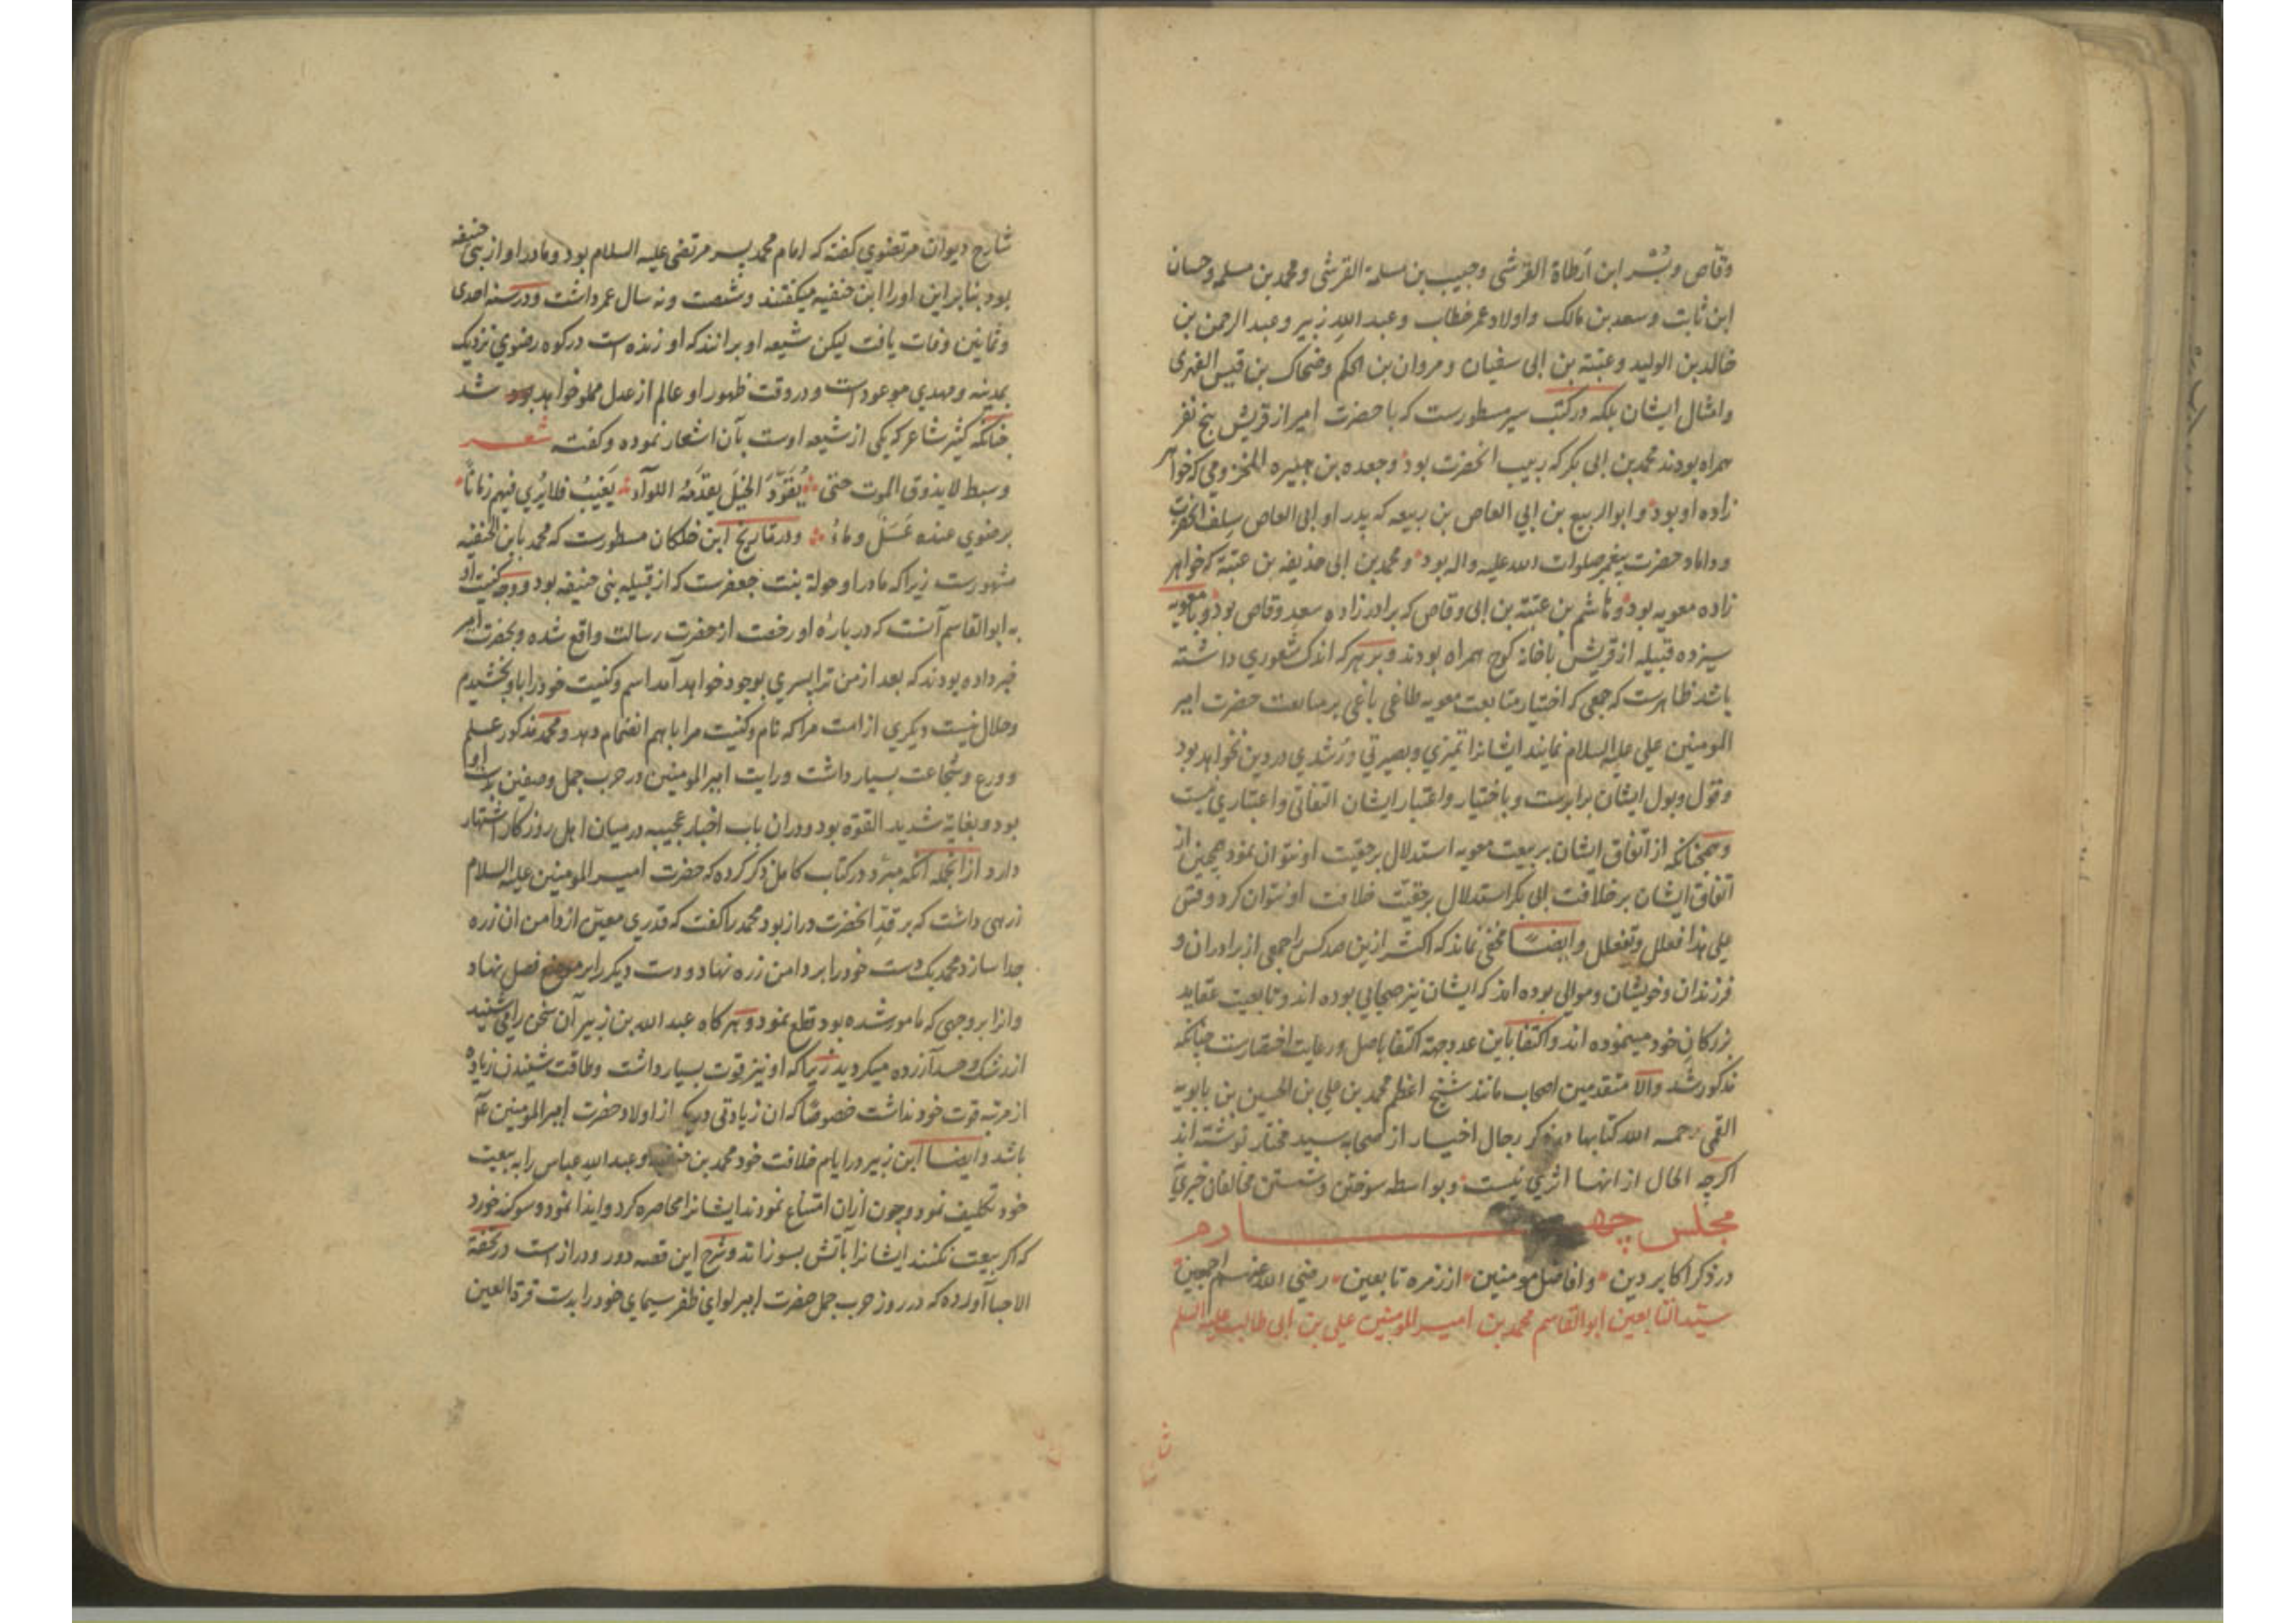 وقاص و بُسْر ابن ارطاة القرشی و حبیب بن مسلمة القرشی و محمد بن مسلمه و حسان
ابن ثابت و سعد بن مالک و اولاد عمر خطاب و عبد الله زبیر و عبد الرحمن بن
خالد بن الولید و عتبة بن ابی سفیان و مروان بن الحکم و ضحاک بن قیس الفهری
و امثال ایشان بلکه در کتب سیر مسطورست که با حضرت امیر از قریش پنج نفر
همراه بودند محمد بن ابی بکر که ربیب انحضرت بود و جعده بن هبیره المخزومی که خواهر
زاده او بود و ابو الربیع بن ابی العاص بن ربیعه که پدر او ابی العاص سلف انحضرت
و داماد حضرت پیغمبر صلوات الله علیه و اله بود و محمد بن ابی حذیفه بن عتبة که خواهر
زاده معویه بود و هاشم بن عتبة بن ابی وقاص که برادر زاده سعد وقاص بود و با معویه
سیزده قبیله از قریش با خانه کوچ همراه بودند و بر هر که اندک شعوری داشته
باشد ظاهرست که جمعی که اختیار متابعت معویه طاغی باغی بر متابعت حضرت امیر
المومنین علی علیه السلام نمایند ایشانرا تمیزی و بصیرتی و رشدی در دین نخواهد بود
و قول و بول ایشان برابرست و باختیار و اعتبار ایشان التفاتی و اعتباری نیست
و همچنانکه از اتفاق ایشان بر بیعت معویه استدلال بر حقیت او نتوان نمود همچنین از
اتفاق ایشان بر خلافت ابی بکر استدلال بر حقیت خلافت او نتوان کرد و قس
علی هذا فعلل و تفعلل و ایضا مخفی نماند که اکثر ازین صد کس را جمعی از برادران و
فرزندان و خویشان و موالی بوده اند که ایشان نیز صحابی بوده اند و تابعیت عقاید
بزرکان خود مینموده اند و اکتفا باین عدد جهة اکتفا باصل و رعایت اختصارست چنانکه
مذکور شد و الا متقدمین اصحاب مانند شیخ اعظم محمد بن علی بن الحسین بن بابویه
القمی رحمه الله کتابها در ذکر رجال اخیار از صحابه سید مختار نوشته اند
اکرچه الحال از انها اثری نیست و بواسطه سوختن و شستن مخالفان خبری
مجلس چهارم
در ذکر اکابر دین و افاضل مومنین از زمره تابعین رضی الله عنهم اجمعین
سید التابعین ابو القاسم محمد بن امیر المومنین علی بن ابی طالب علیه السلم
شارح دیوان مرتضوی کفته که امام محمد پسر مرتضی علیه السلام بود و مادر او از بنی حنیفه
بود بنا براین او را ابن حنفیه میکفتند و شصت و نه سال عمر داشت و در سنه احدی
و ثمانین وفات یافت لیکن شیعه او بر انند که او زنده است در کوه رضوی نزدیک
بمدینه و مهدی موعود است و در وقت ظهور او عالم از عدل مملو خواهد شد
چنانکه کثیر شاعر که یکی از شیعه اوست بآن اشعار نموده و کفته شعر
و سبط لا یذوق الموت حتی یُقَوِّدَ الخیَلَ یقدَمُهُ اللوآء یَغیبُ فلا یُری فیهم زمانًا
برضوی عنده عَسَلٌ و ماءُ و در تاریخ ابن خلکان مسطورست که محمد بابن الحنفیه
مشهورست زیرا که مادر او خولة بنت جعفرست که از قبیله بنی حنیفه بود و وجه کنیت او
به ابو القاسم آنست که در بارهٔ او رخصت از حضرت رسالت واقع شده و بحضرت امیر
خبر داده بودند که بعد از من ترا پسری بوجود خواهد آمد اسم و کنیت خود را باو بخشیدم
و حلال نیست دیکری از امت مرا که نام و کنیت مرا با هم انضمام دهد و محمد مذکور علم
و ورع و شجاعت بسیار داشت و رایت امیر المومنین در حرب جمل و صفین بدست او
بود و بغایة شدید القوة بود و دران باب اخبار عجیبه در میان اهل روزکار اشتهار
دارد از انجمله انکه مبرّد در کتاب کامل ذکر کرده که حضرت امیر المومنین علیه السلام
زرهی داشت که بر قدّ انحضرت دراز بود محمد را کفت که قدری معین از دامن ان زره
جدا سازد محمد یک دست خود را بر دامن زره نهاد و دست دیکر را بر موضع فصل نهاد
و انرا بر وجهی که مامور شده بود قطع نمود و هر کاه عبد الله بن زبیر آن سخن را می شنید
از رشک و حسد آزرده میکردید زیرا که او نیز قوت بسیار داشت و طاقت شنیدن زیاده
از مرتبه قوت خود نداشت خصوصا که ان زیادتی در یکی از اولاد حضرت امیر المومنین عم
باشد و ایضا ابن زبیر در ایام خلافت خود محمد بن حنفیه و عبد الله عباس را به بیعت
خود تکلیف نمود و چون ازان امتناع نمودند ایشانرا محاصره کرد و ایذا نمود و سوکند خورد
که اکر بیعت نکنند ایشانرا بآتش بسوزاند و شرح این قصه دور و دراز است در تحفة
الاحبا آورده که در روز حرب جمل حضرت امیر لوای ظفر سیمای خود را بدست قرة العین